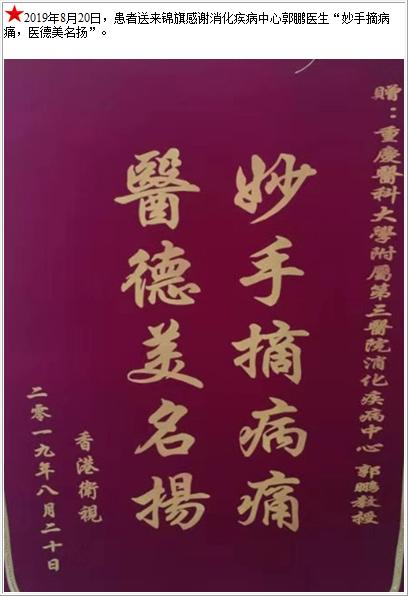 ★2019年8月20日，患者送来锦旗感谢消化疾病中心郭鹏医生“妙手摘病
痛，医德美名扬”。
贈：重慶醫科大學附屬第三醫院消化疾病中心 郭鵬教授
妙手摘病痛
醫德美名揚
香港衛視
二零一九年八月二十日